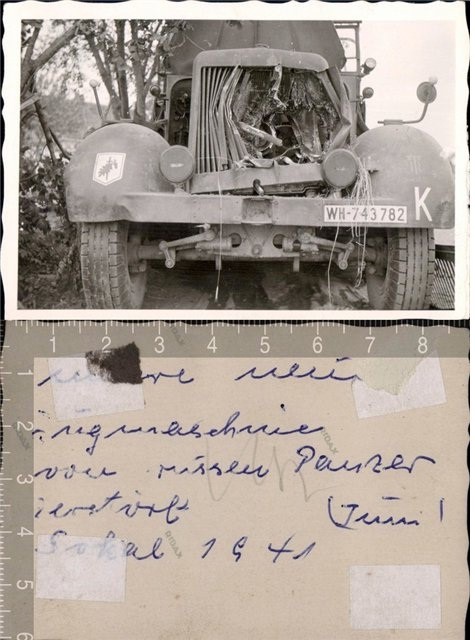 WH-743782 K
1 2 3 4 5 6 7 8
1
2
3
4
5
6
ugmaschine
von russen Panzer
erstört (Juni)
Sokal 1941